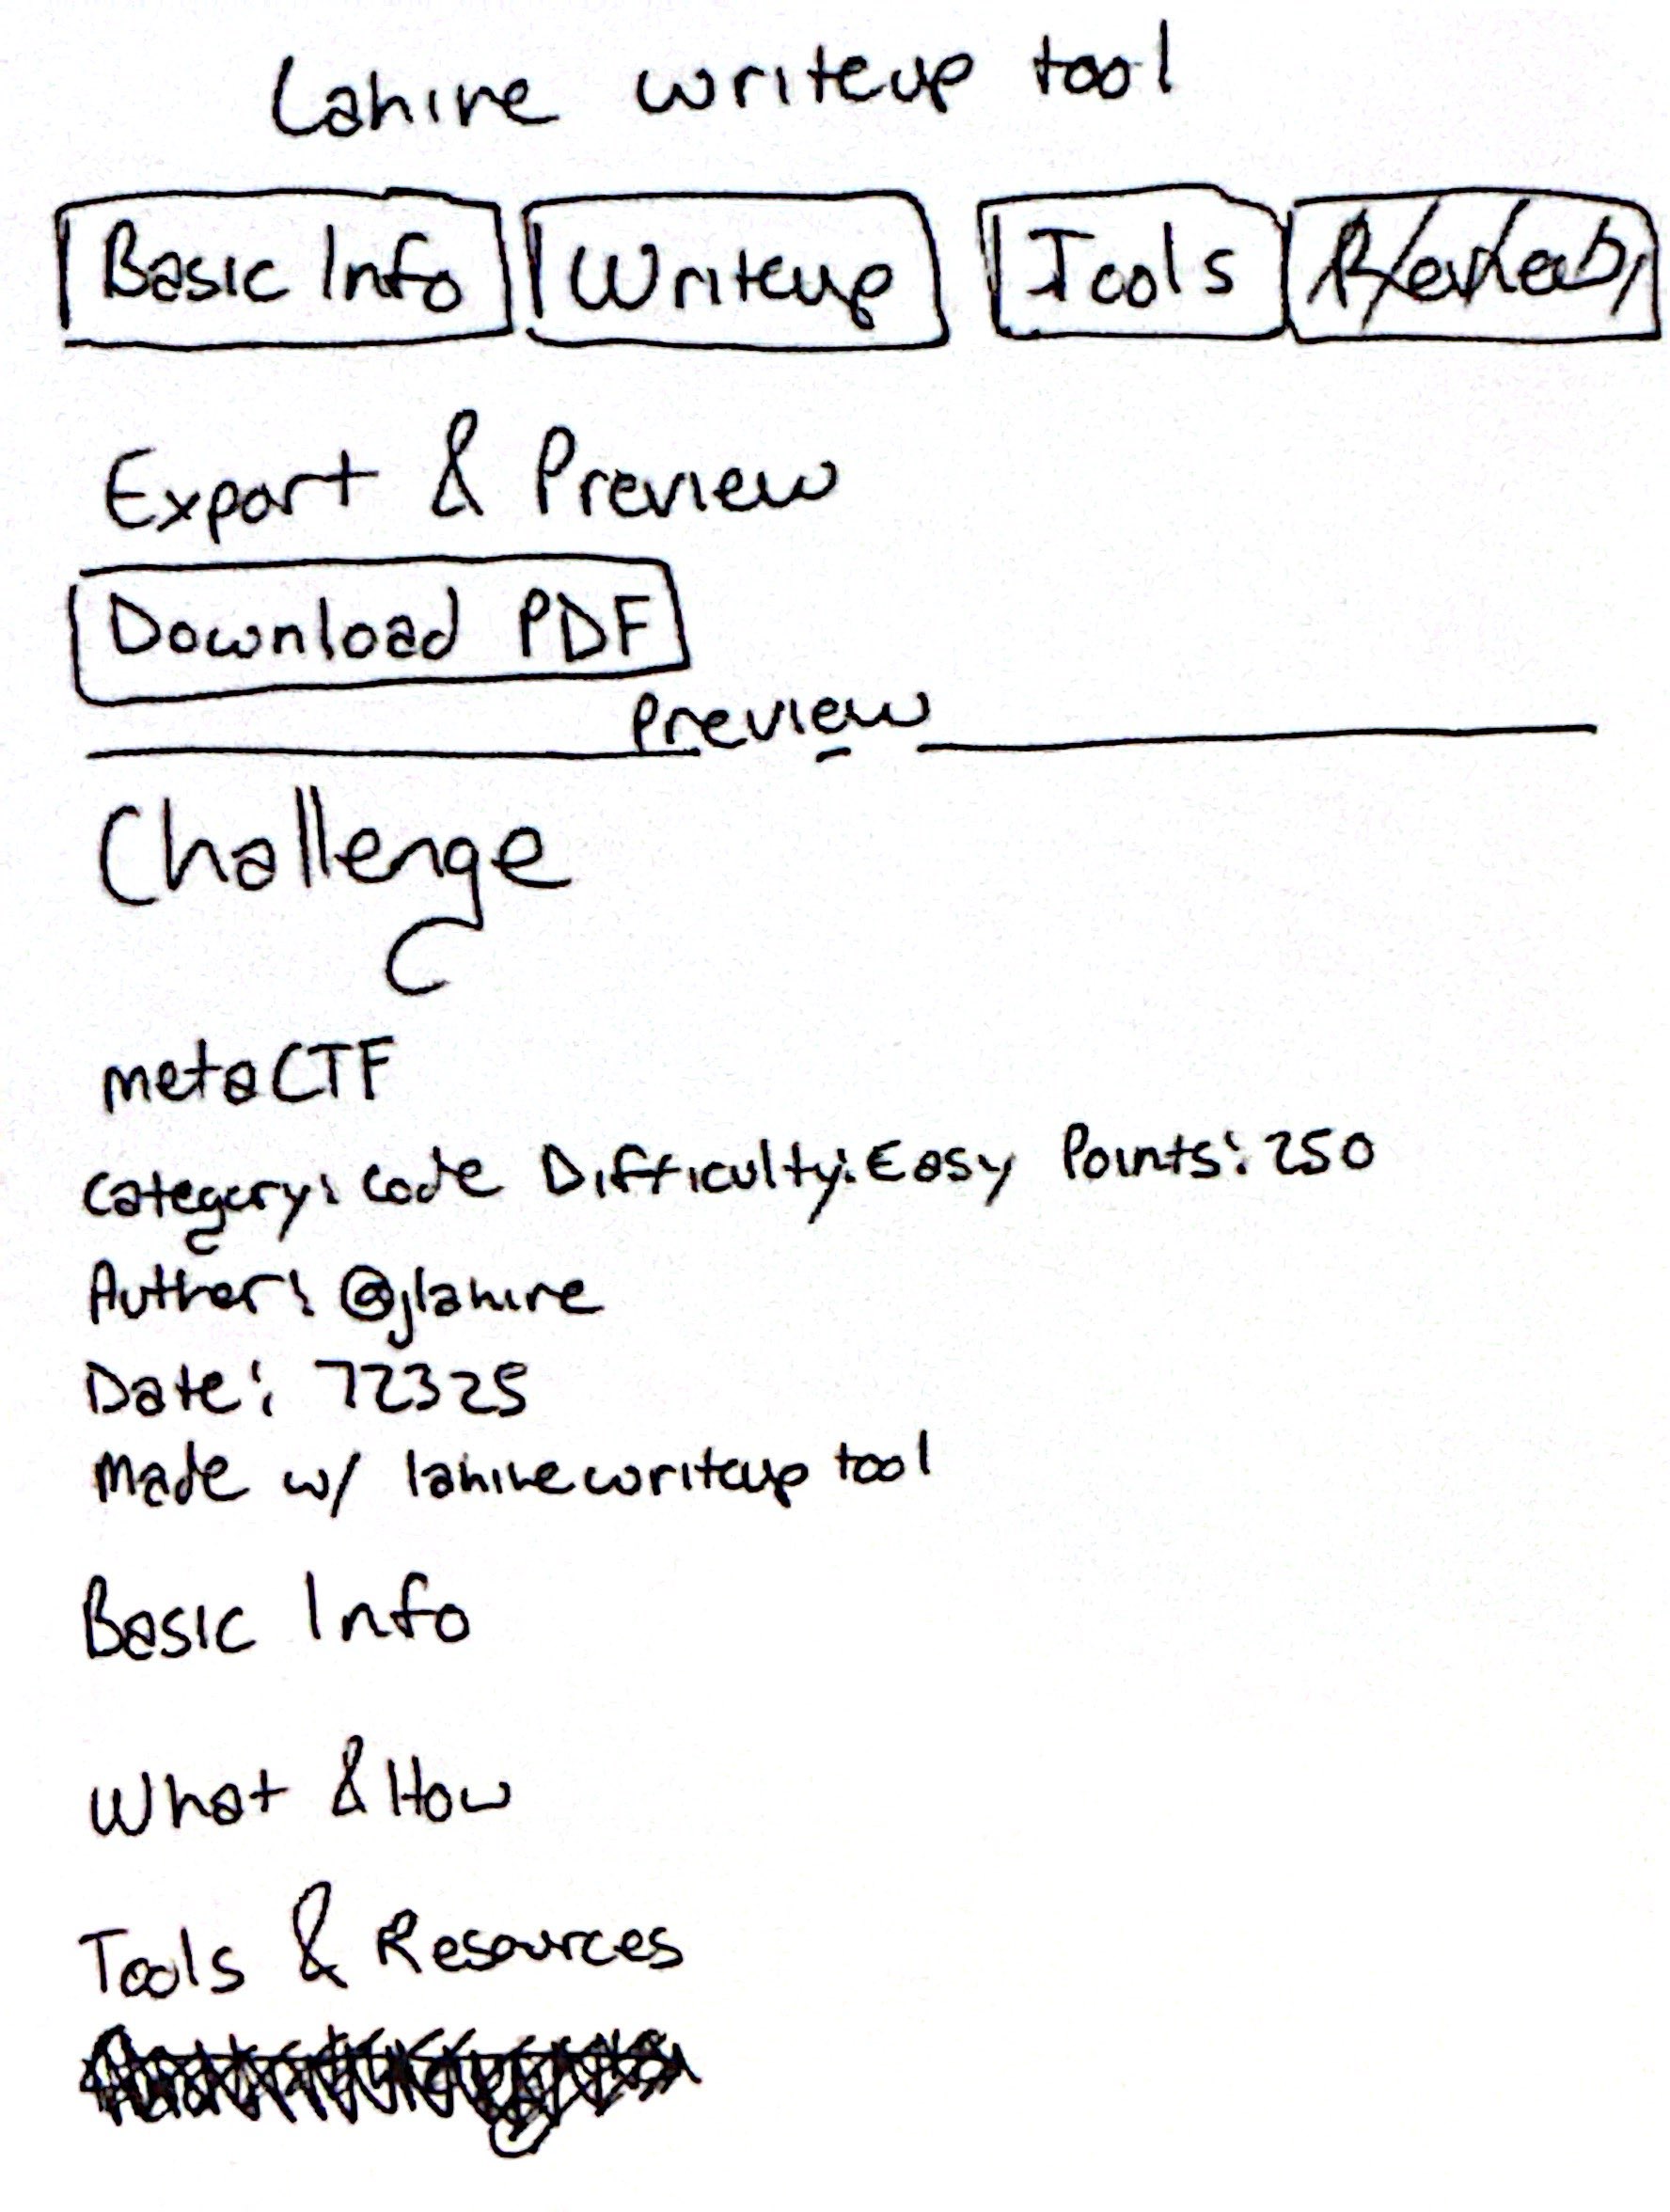 Lahire writeup tool
Basic Info Writeup Tools
Export & Preview
Download PDF
Preview
Challenge
metaCTF
Category: Code Difficulty: Easy Points: 250
Author: @jlahire
Date: 72325
Made w/ lahirewriteup tool
Basic Info
What & How
Tools & Resources